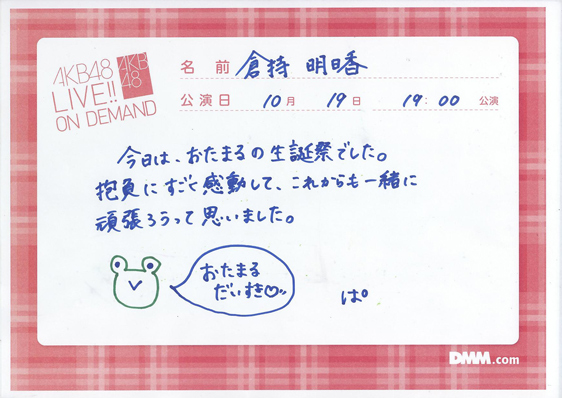 AKB48
LIVE!!
ON DEMAND
AKB
48
名前 倉持 明日香
公演日 10月 19日 19:00 公演
今日は、おたまるの生誕祭でした。
抱負にすごく感動して、これからも一緒に
頑張ろうって思いました。
おたまる
だいすき♡
ぱ。
DMM.com